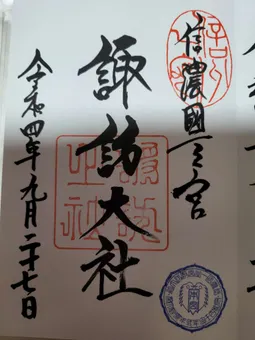 信濃國一之宮
諏訪大社
令和四年九月二十七日